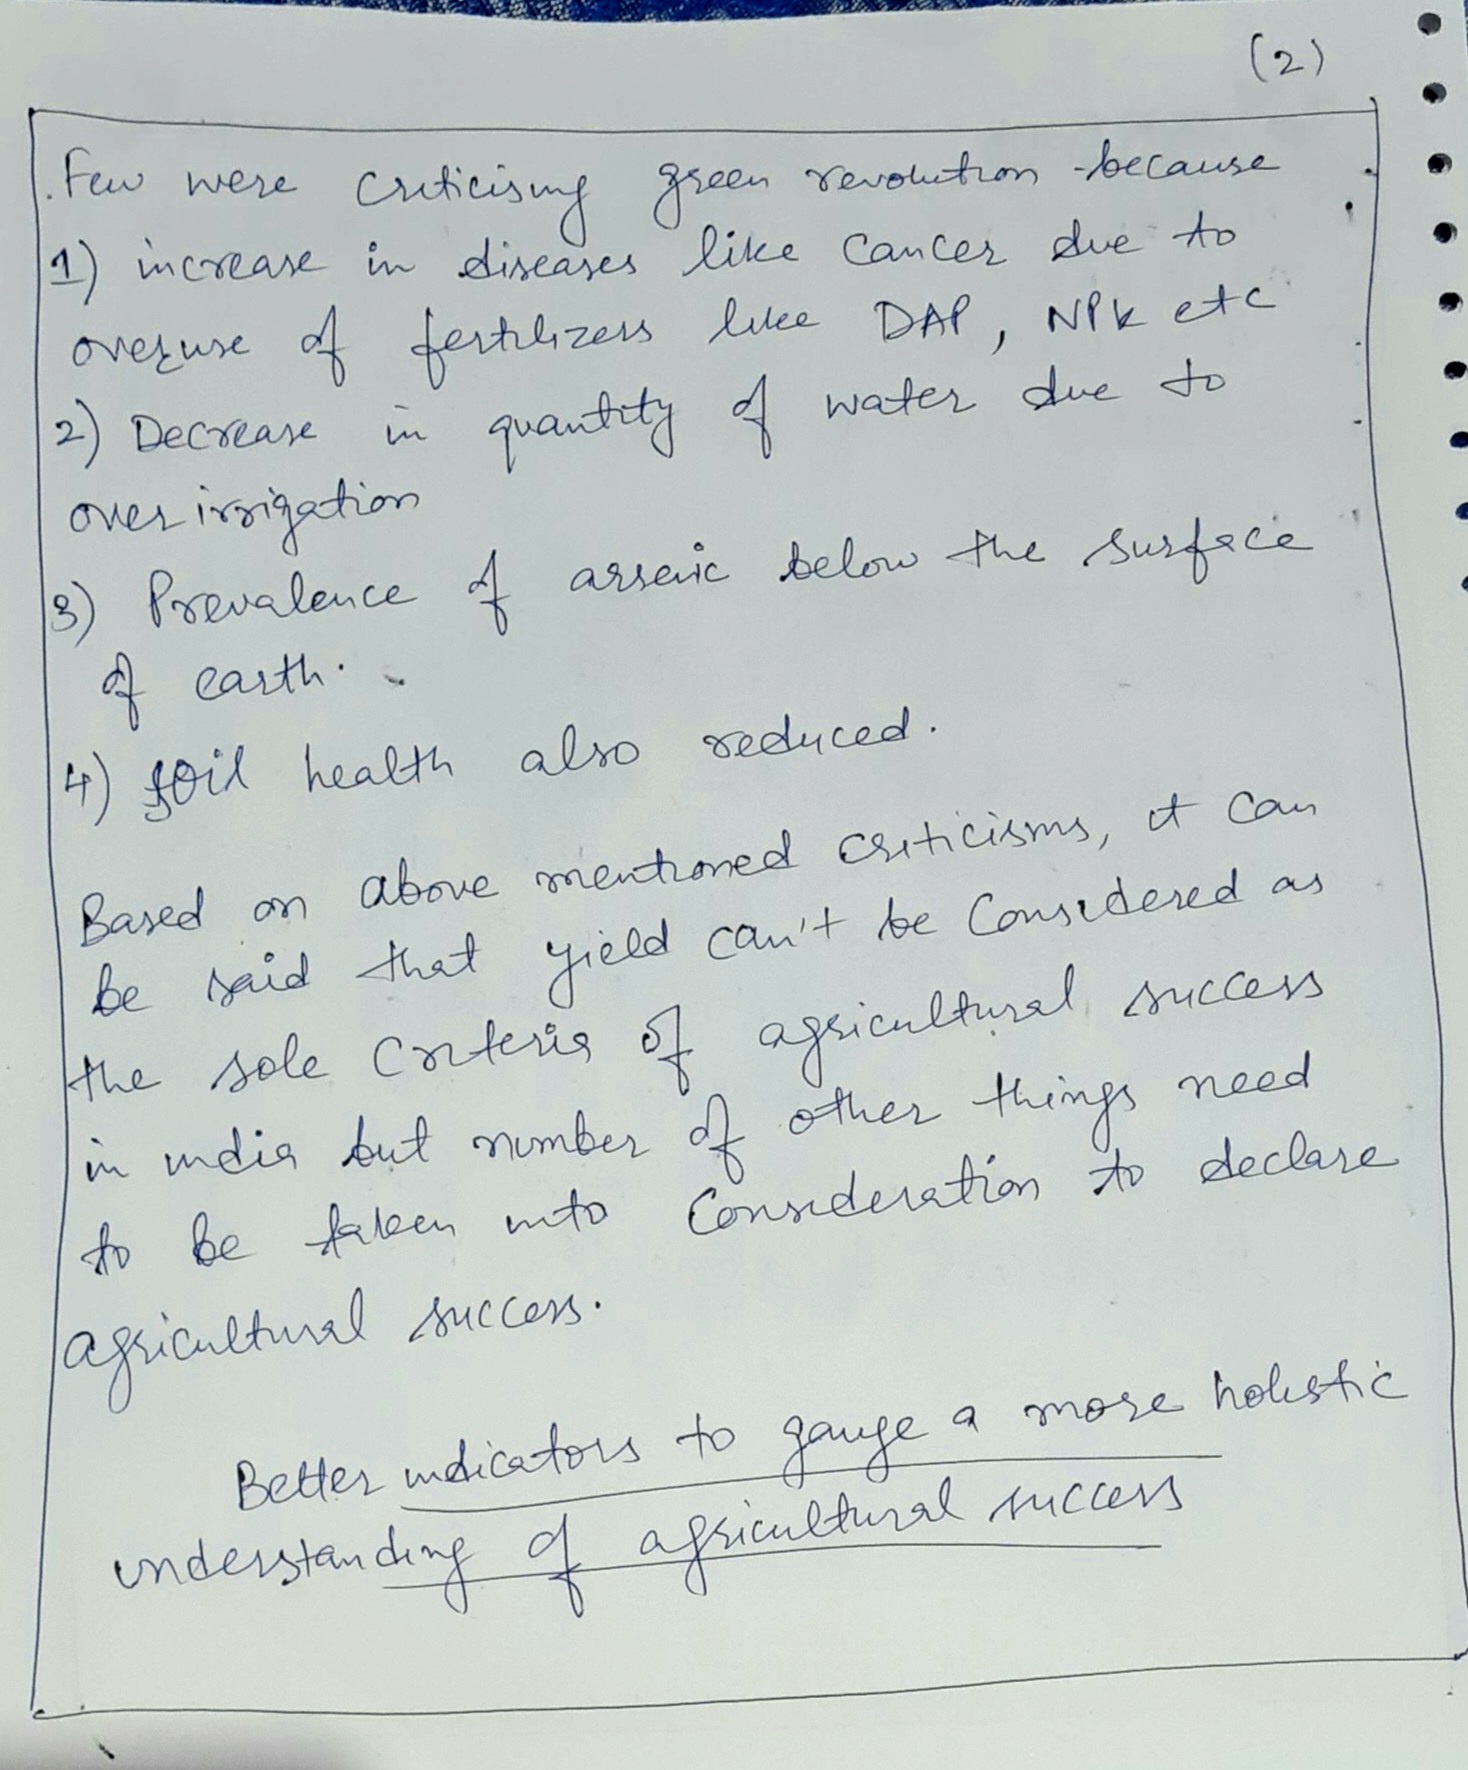 (2)
. Few were criticising green revolution because
1) increase in diseases like cancer due to
overuse of fertilizers like DAP, NPK etc
2) Decrease in quantity of water due to
over irrigation
3) Prevalence of arsenic below the surface
of earth.
4) soil health also reduced.
Based on above mentioned criticisms, it can
be said that yield can't be considered as
the sole criteria of agricultural success
in india but number of other things need
to be taken into consideration to declare
agricultural success.
Better indicators to gauge a more holistic
understanding of agricultural success